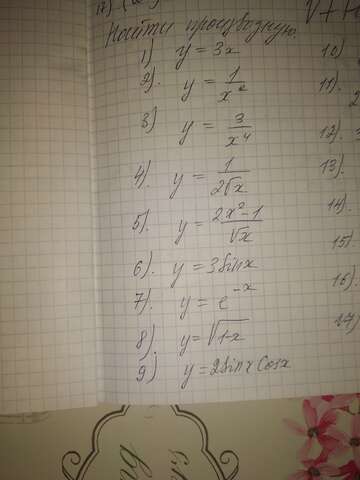 Найти производную.
1) y = 3x
2). y = 1/x²
3) y = 3/x⁴
4). y = 1/2√x
5). y = 2x²-1/√x
6). y = 3Sinx
7). y = e^-x
8). y = √1-x
9) y = 2Sinx Cosx
10)
11).
12).
13).
14).
15)
16).
17)